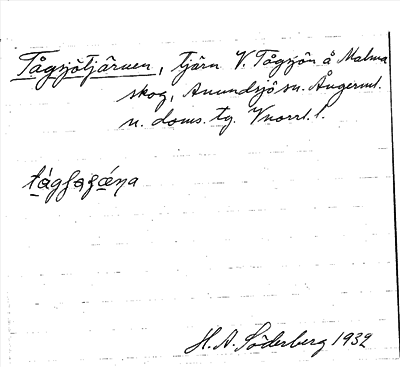 Tågsjötjärnen, tjärn V. Tågsjön å Malma
skog, Anundsjö sn. Ångerml.
n. doms. tg. Vnorrl. l.
H. A. Söderberg 1932